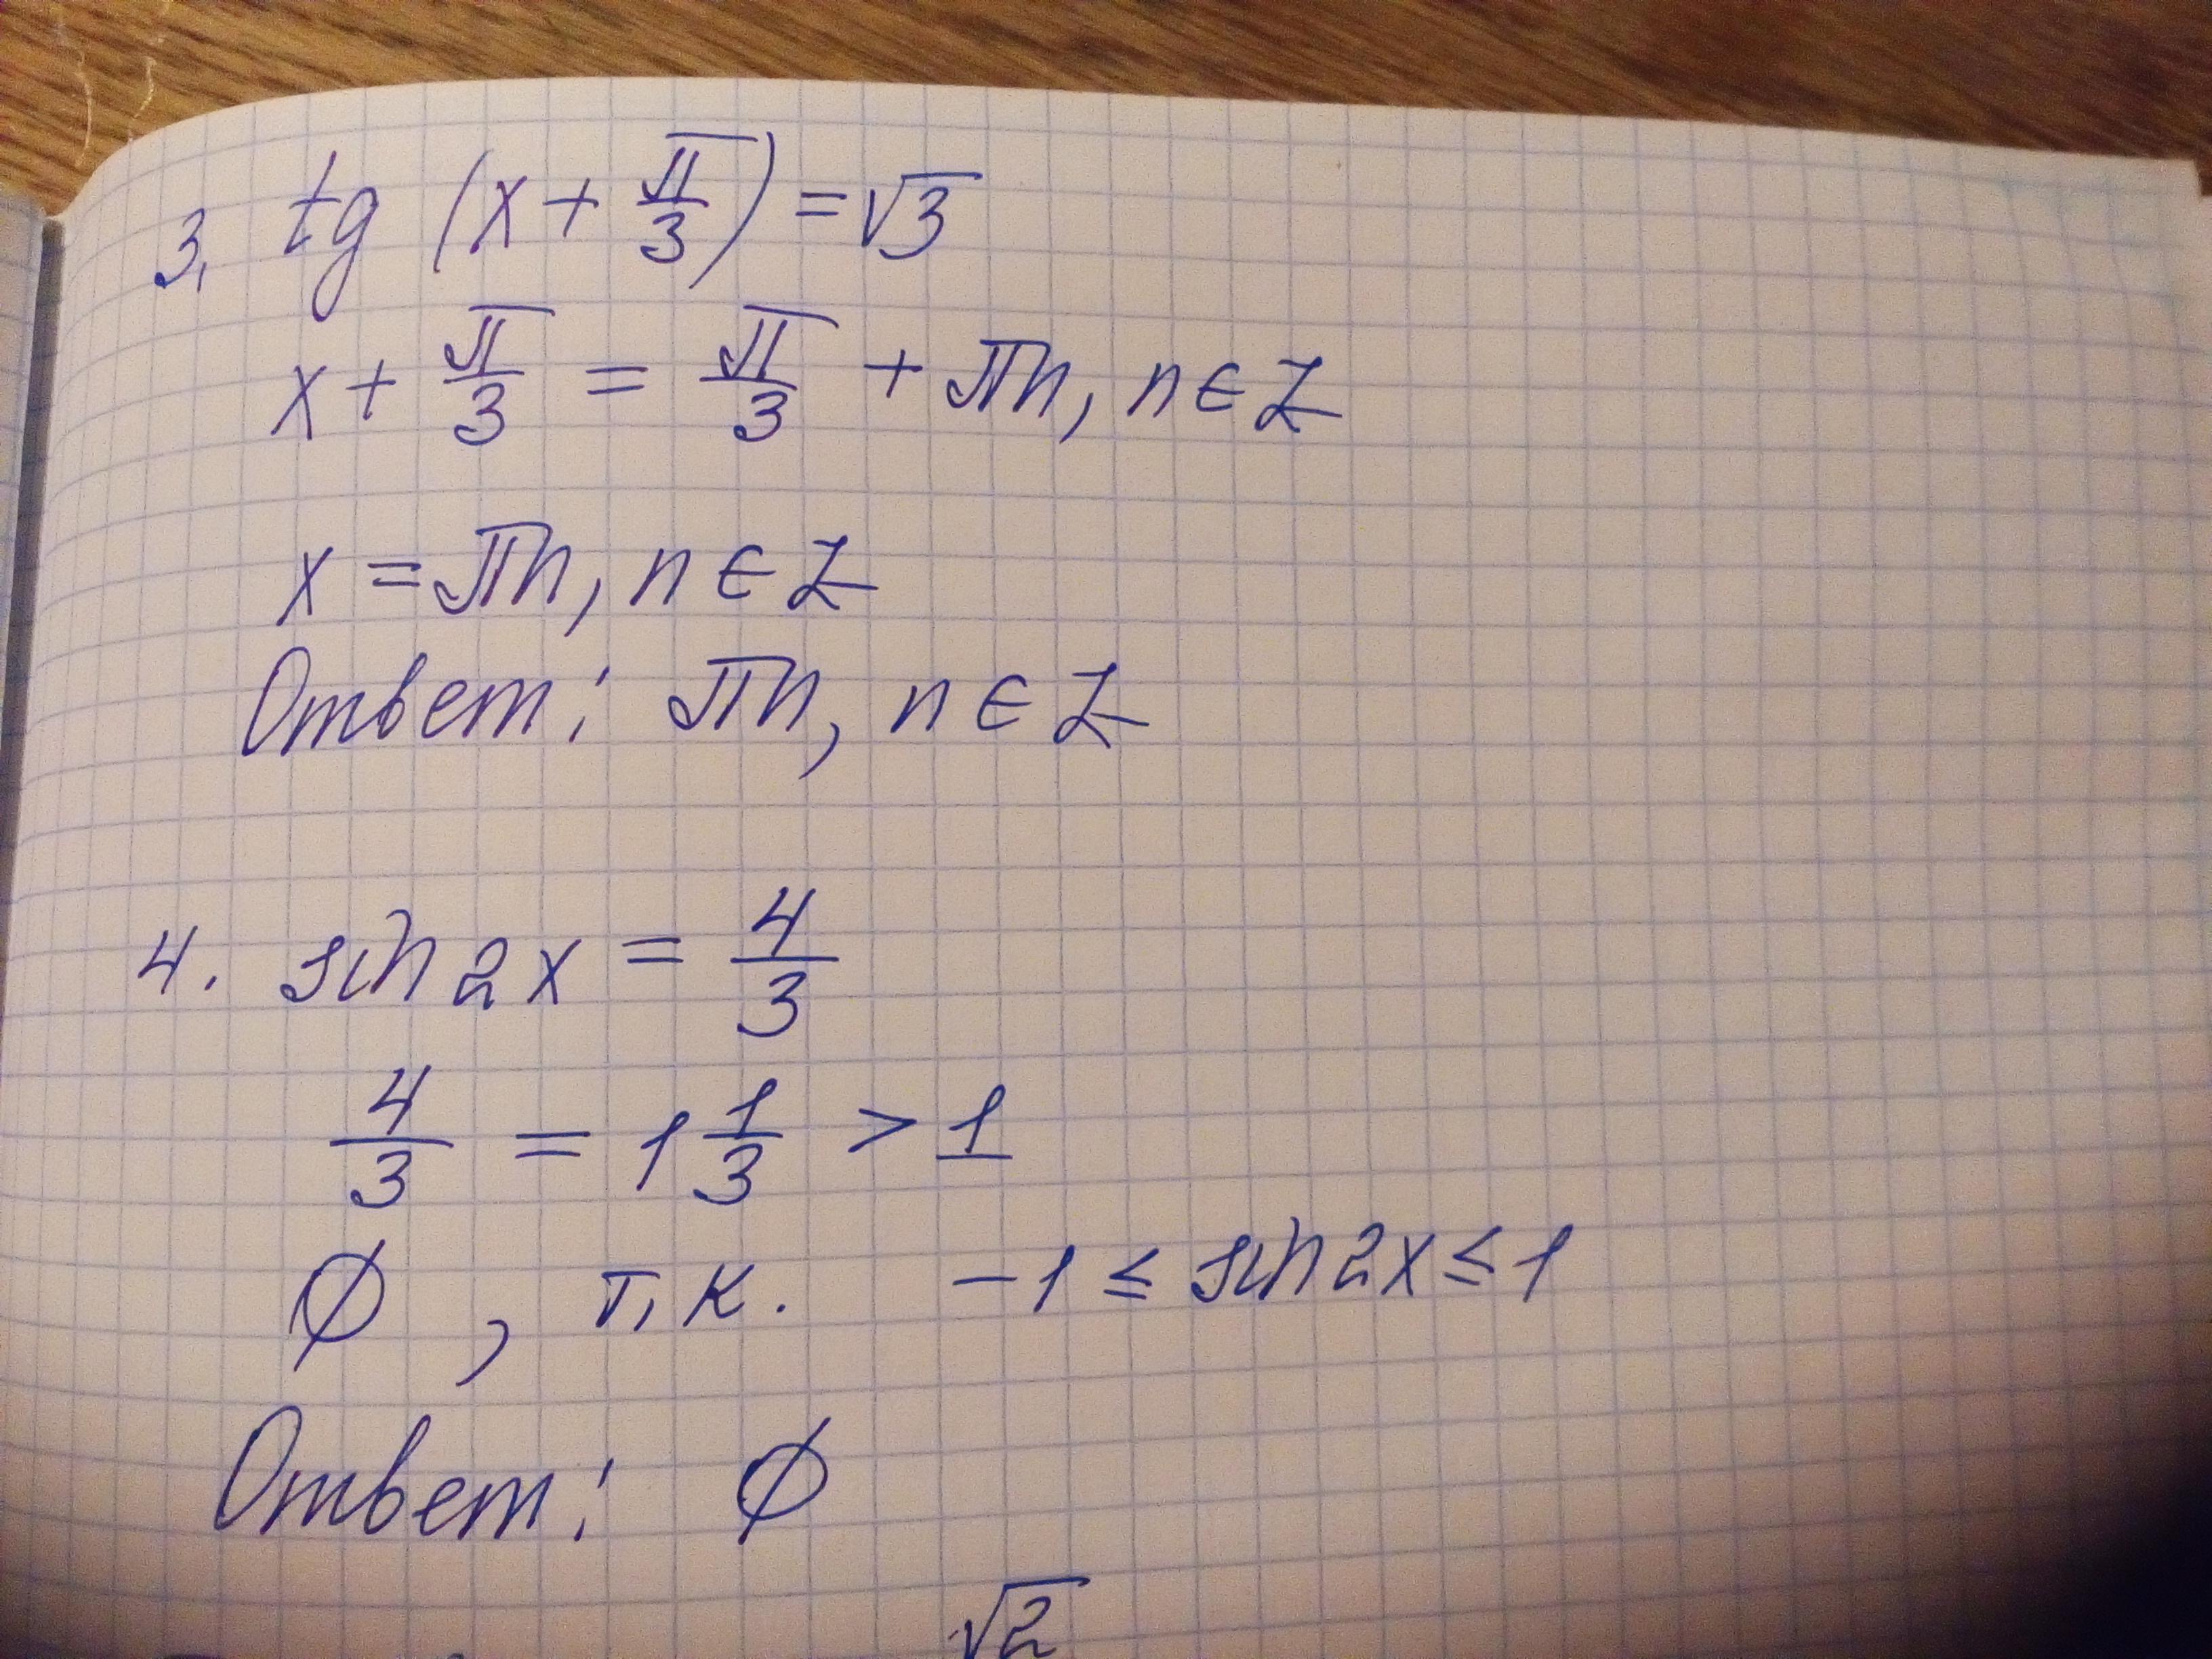 3. tg (x + π/3) = √3
x + π/3 = π/3 + πn, n ∈ Z
x = πn, n ∈ Z
Ответ: πn, n ∈ Z
4. sin 2x = 4/3
4/3 = 1 1/3 > 1
∅, т.к. -1 ≤ sin 2x ≤ 1
Ответ: ∅
√2